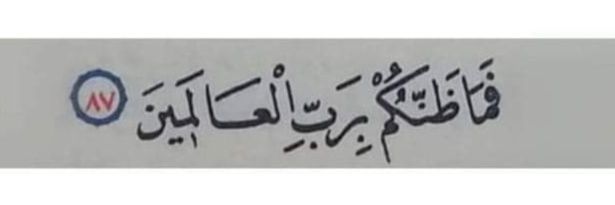 فَمَا ظَنُّكُمْ بِرَبِّ الْعَالَمِينَ ٨٧